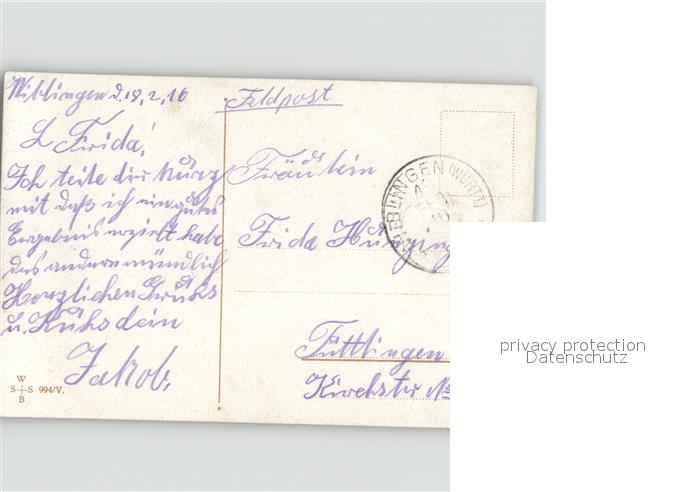 Wiblingen d. 19.2.16
L Frida!
Ich teile dir kurz
mit daß ich ein gutes
Ergebnis erzielt habe
das andere mündlich
Herzlichen Gruß
u. Kuß dein
Jakob.
W
S+S 994/V.
B
Feldpost
Fräulein
Frida
Tuttlingen
Kirchstr No
WIBLINGEN (WÜRTT)
privacy protection
Datenschutz